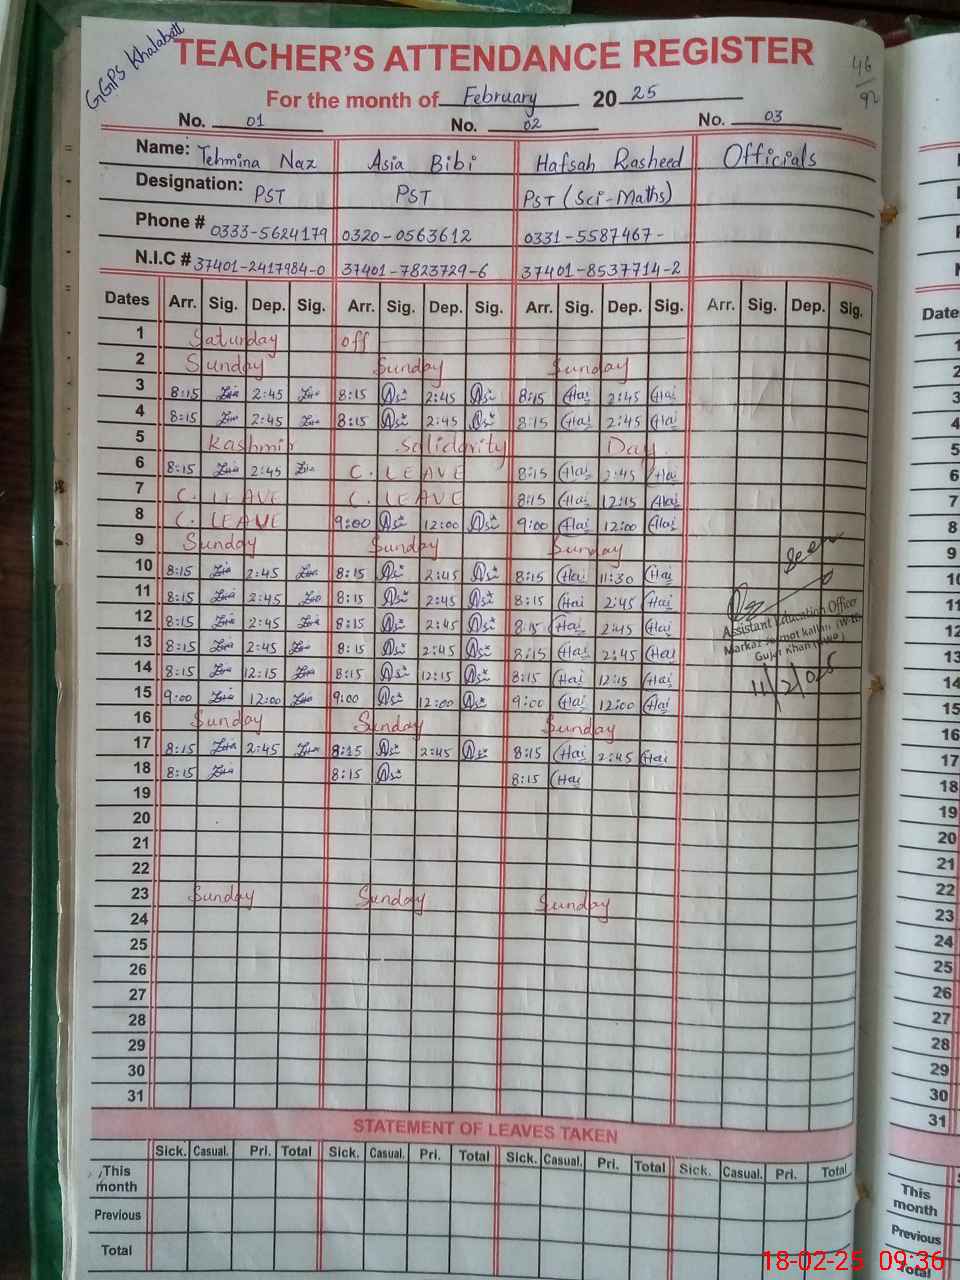 GGPS Khalabatt
TEACHER'S ATTENDANCE REGISTER
46
92
For the month of February 2025
No. 01 No. 02 No. 03
Name: Tehmina Naz Asia Bibi Hafsah Rasheed Officials
Designation: PST PST PST (Sci-Maths)
Phone # 0333-5624179 0320-0563612 0331-5587467-
N.I.C # 37401-2417984-0 37401-7823729-6 37401-8537714-2
Dates Arr. Sig. Dep. Sig. Arr. Sig. Dep. Sig. Arr. Sig. Dep. Sig. Arr. Sig. Dep. Sig.
1 Saturday off
2 Sunday Sunday Sunday
3 8:15 2:45 8:15 2:45 8:15 2:45
4 8:15 2:45 8:15 2:45 8:15 2:45
5 Kashmir Solidarity Day
6 8:15 2:45 C. LEAVE 8:15 2:45
7 C. LEAVE C. LEAVE 8:15 12:15
8 C. LEAVE 9:00 12:00 9:00 12:00
9 Sunday Sunday Sunday
10 8:15 2:45 8:15 2:45 8:15 11:30
11 8:15 2:45 8:15 2:45 8:15 2:45
12 8:15 2:45 8:15 2:45 8:15 2:45
13 8:15 2:45 8:15 2:45 8:15 2:45
14 8:15 12:15 8:15 12:15 8:15 12:15
15 9:00 12:00 9:00 12:00 9:00 12:00
16 Sunday Sunday Sunday
17 8:15 2:45 8:15 2:45 8:15 2:45
18 8:15 8:15 8:15
19
20
21
22
23 Sunday Sunday Sunday
24
25
26
27
28
29
30
31
Seen
Assistant Education Officer
Markaz
Gujar Khan
11/2/025
STATEMENT OF LEAVES TAKEN
Sick. Casual. Pri. Total Sick. Casual. Pri. Total Sick. Casual. Pri. Total Sick. Casual. Pri. Total
This month
Previous
Total
Dates
1
2
3
4
5
6
7
8
9
10
11
12
13
14
15
16
17
18
19
20
21
22
23
24
25
26
27
28
29
30
31
This month
Previous
Total
18-02-25 09:36